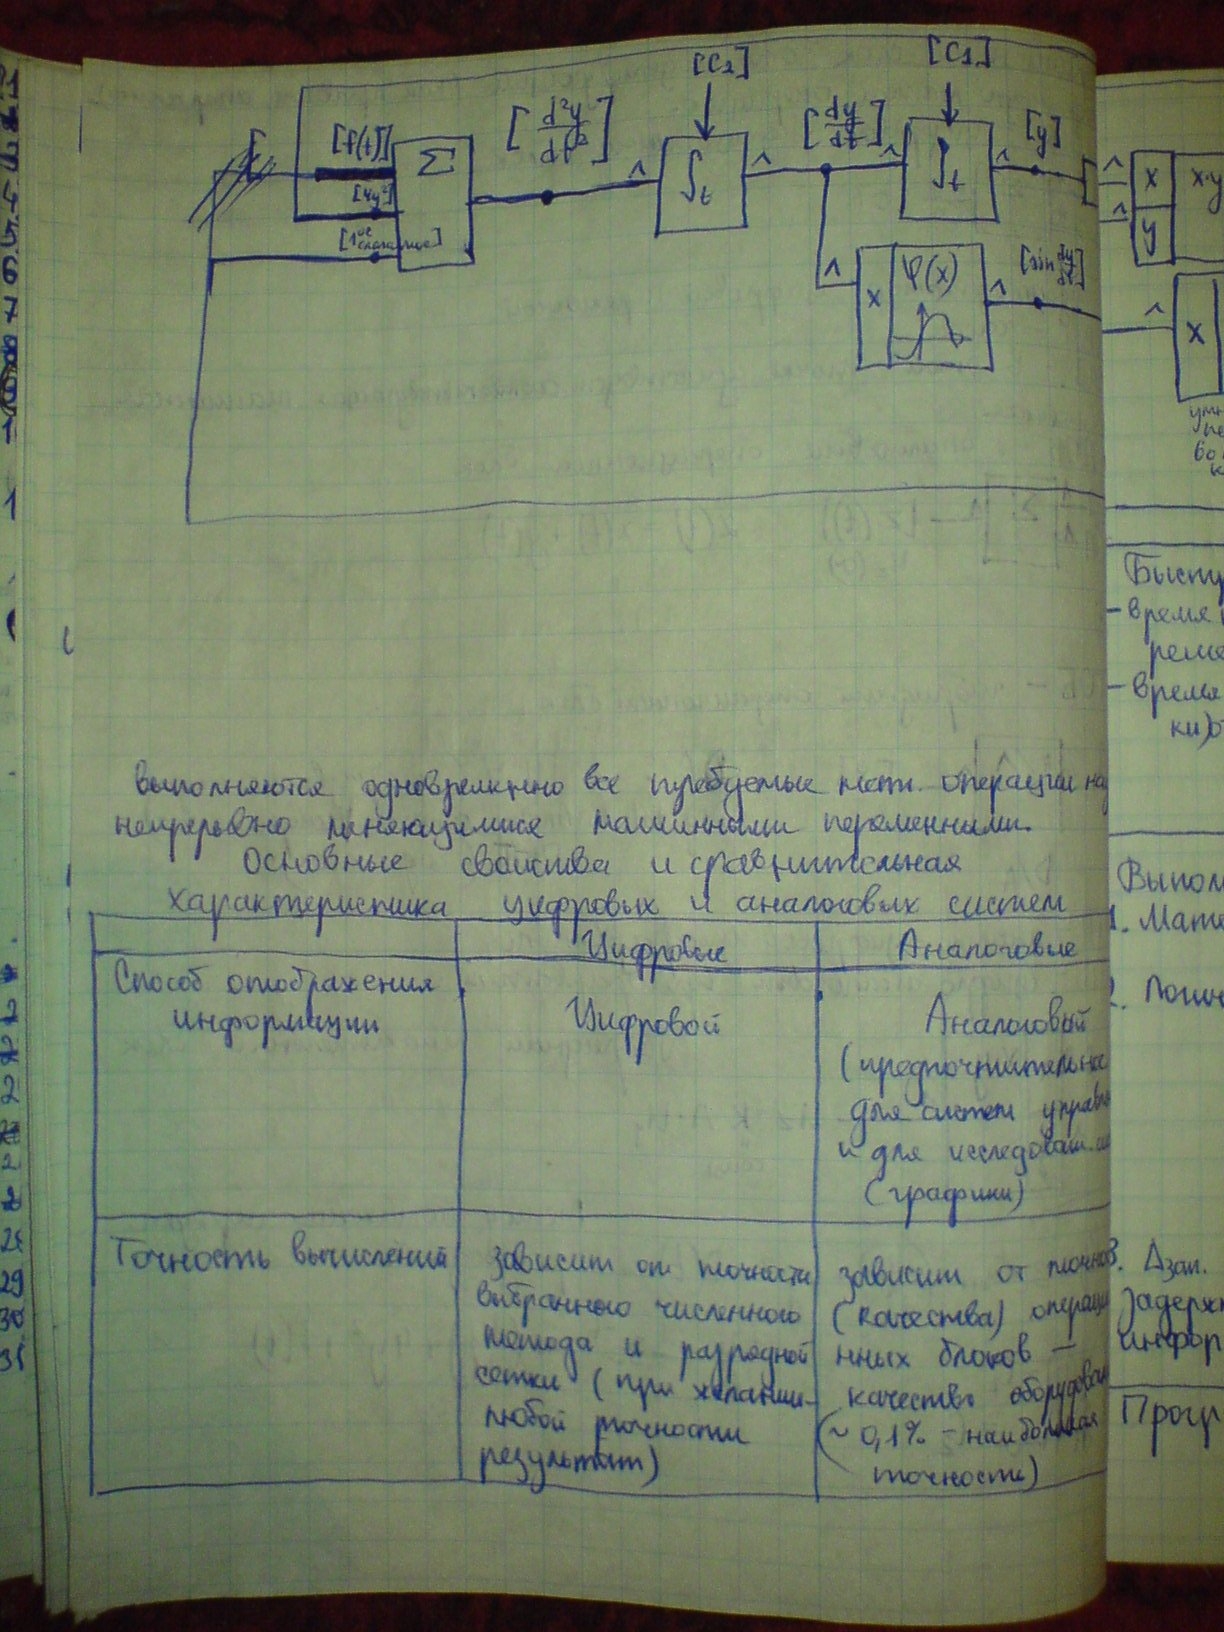 [C₂] [C₁]
[f(t)] Σ [d²y/dt²] ∫t [dy/dt] ∫t [y] x x·y
[4y²] y
[1ое слагаемое]
x φ(x) [sin dy/dt] x
выполняются одновременно все требуемые мат. операции над
непрерывно меняющимися машинными переменными.
Основные свойства и сравнительная
характеристика цифровых и аналоговых систем
Цифровые Аналоговые
Способ отображения
информации
Цифровой
Аналоговый
(предпочтительнее
для систем управл
и для исследоват.
(графики)
Точность вычислений
зависит от точности
выбранного численного
метода и разрядной
сетки (при желании -
любой точности
результат)
зависит от точнос
(качества) операцио
нных блоков –
качество оборудован
(~ 0,1% - наибольшая
точность)
Быст
– время
реше
– время
ки)
Выпол
1. Мате
2. Логич
Задерж
инфор
Прогр
6
7
1
2
2
2
29
30
31